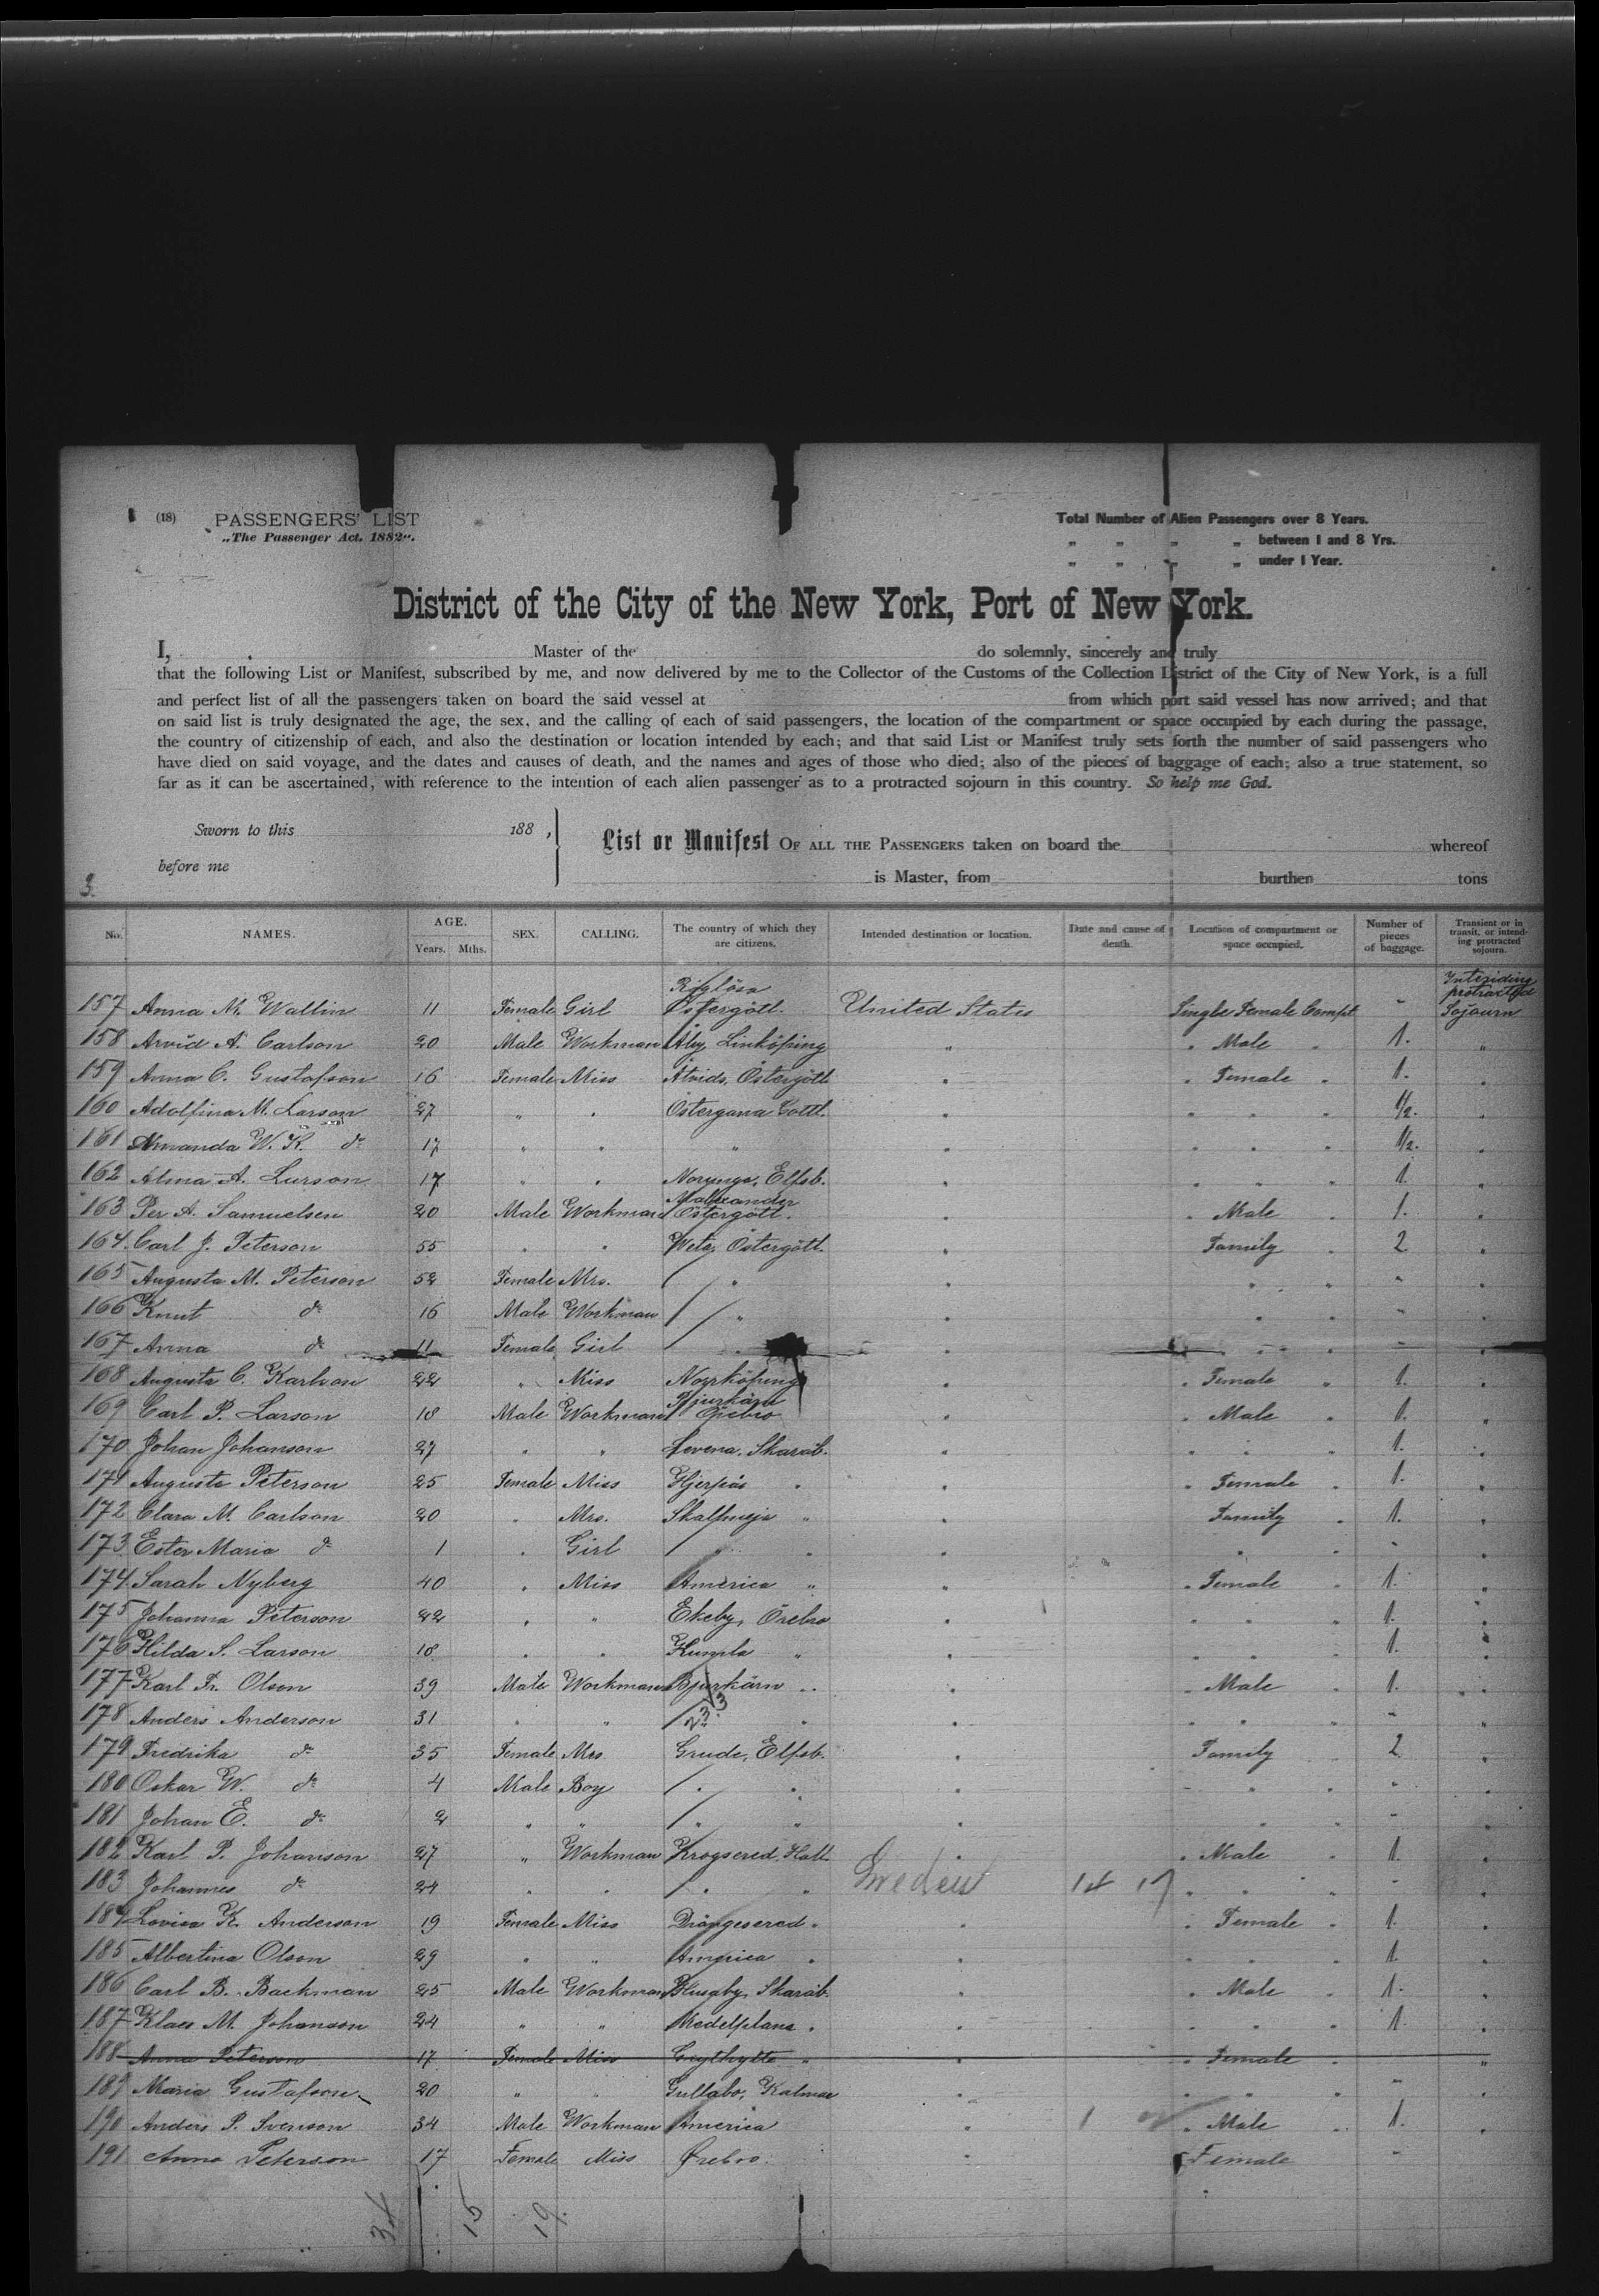 (18) PASSENGERS' LIST
„The Passenger Act, 1882“.
Total Number of Alien Passengers over 8 Years.
„ „ „ „ between 1 and 8 Yrs.
„ „ „ „ under 1 Year.
District of the City of the New York, Port of New York.
I, Master of the do solemnly, sincerely and truly
that the following List or Manifest, subscribed by me, and now delivered by me to the Collector of the Customs of the Collection District of the City of New York, is a full
and perfect list of all the passengers taken on board the said vessel at from which port said vessel has now arrived; and that
on said list is truly designated the age, the sex, and the calling of each of said passengers, the location of the compartment or space occupied by each during the passage,
the country of citizenship of each, and also the destination or location intended by each; and that said List or Manifest truly sets forth the number of said passengers who
have died on said voyage, and the dates and causes of death, and the names and ages of those who died; also of the pieces of baggage of each; also a true statement, so
far as it can be ascertained, with reference to the intention of each alien passenger as to a protracted sojourn in this country. So help me God.
Sworn to this 188 ,
before me
List or Manifest OF ALL THE PASSENGERS taken on board the whereof
is Master, from burthen tons
3.
No. NAMES. AGE. Years. Mths. SEX. CALLING. The country of which they are citizens. Intended destination or location. Date and cause of death. Location of compartment or space occupied. Number of pieces of baggage. Transient or in transit, or intending protracted sojourn.
157 Anna M. Wallin 11 Female Girl Östergötl. United States Single Female Compt. " Intending protracted Sojourn
158 Arvid A. Carlson 20 Male Workman Åby, Linköping " " Male " 1. "
159 Anna C. Gustafson 16 Female Miss Åtvids, Östergötl. " " Female " 1. "
160 Adolfina M. Larson 27 " " Östergana Gottl. " " " " 1/2. "
161 Amanda W. K. do 17 " " " " " " " 1/2. "
162 Alma A. Larson 17 " " Norunga, Elfsb. " " " " 1. "
163 Per A. Samuelsen 20 Male Workman Malexander Östergötl. " " Male " 1. "
164 Carl J. Peterson 55 " " Weta, Östergötl. " Family " 2 "
165 Augusta M. Peterson 52 Female Mrs. " " " " " "
166 Knut do 16 Male Workman " " " " " "
167 Anna do 11 Female Girl " " " " "
168 Augusta C. Karlson 22 " Miss Norrköping " " Female " 1. "
169 Carl P. Larson 18 Male Workman Bjurkärn Örebro " " Male " 1. "
170 Johan Johanson 27 " " Levena, Skarab. " " " " 1. "
171 Augusta Peterson 25 Female Miss Hjerpås " " " Female " 1. "
172 Clara M. Carlson 20 " Mrs. " " Family " 1. "
173 Ester Maria do 1 " Girl " " " " " "
174 Sarah Nyberg 40 " Miss America " " " Female " 1. "
175 Johanna Peterson 22 " " Ekeby, Örebro " " " " 1. "
176 Hilda S. Larson 18 " " Kumla " " " " " 1. "
177 Karl Fr. Olson 39 Male Workman Bjurkärn " " " Male " 1. "
178 Anders Anderson 31 " " " " " " " " "
179 Fredrika do 35 Female Mrs Grude, Elfsb. " Family 2 "
180 Oskar W. do 4 Male Boy " " " " " " "
181 Johan E. do 2 " " " " " " " " "
182 Karl P. Johanson 27 " Workman Krogsered, Hall. " " Male " 1. "
183 Johannes do 24 " " " " Sweden 14 17 " " " " "
184 Lovisa K. Anderson 19 Female Miss Drängesered " " " Female " 1. "
185 Albertina Olson 29 " " America " " " " " 1. "
186 Carl B. Backman 25 Male Workman Husaby, Skarab. " " Male " 1. "
187 Klaes M. Johanson 24 " " Medelplana " " " " " 1. "
188 Anna Peterson 17 Female Miss " " " Female " "
189 Maria Gustafson 20 " " Gullabo, Kalmar " " " " " "
190 Anders P. Svenson 34 Male Workman America " 1 " Male " 1. "
191 Anna Peterson 17 Female Miss Örebro. " Female "
34 15 19.